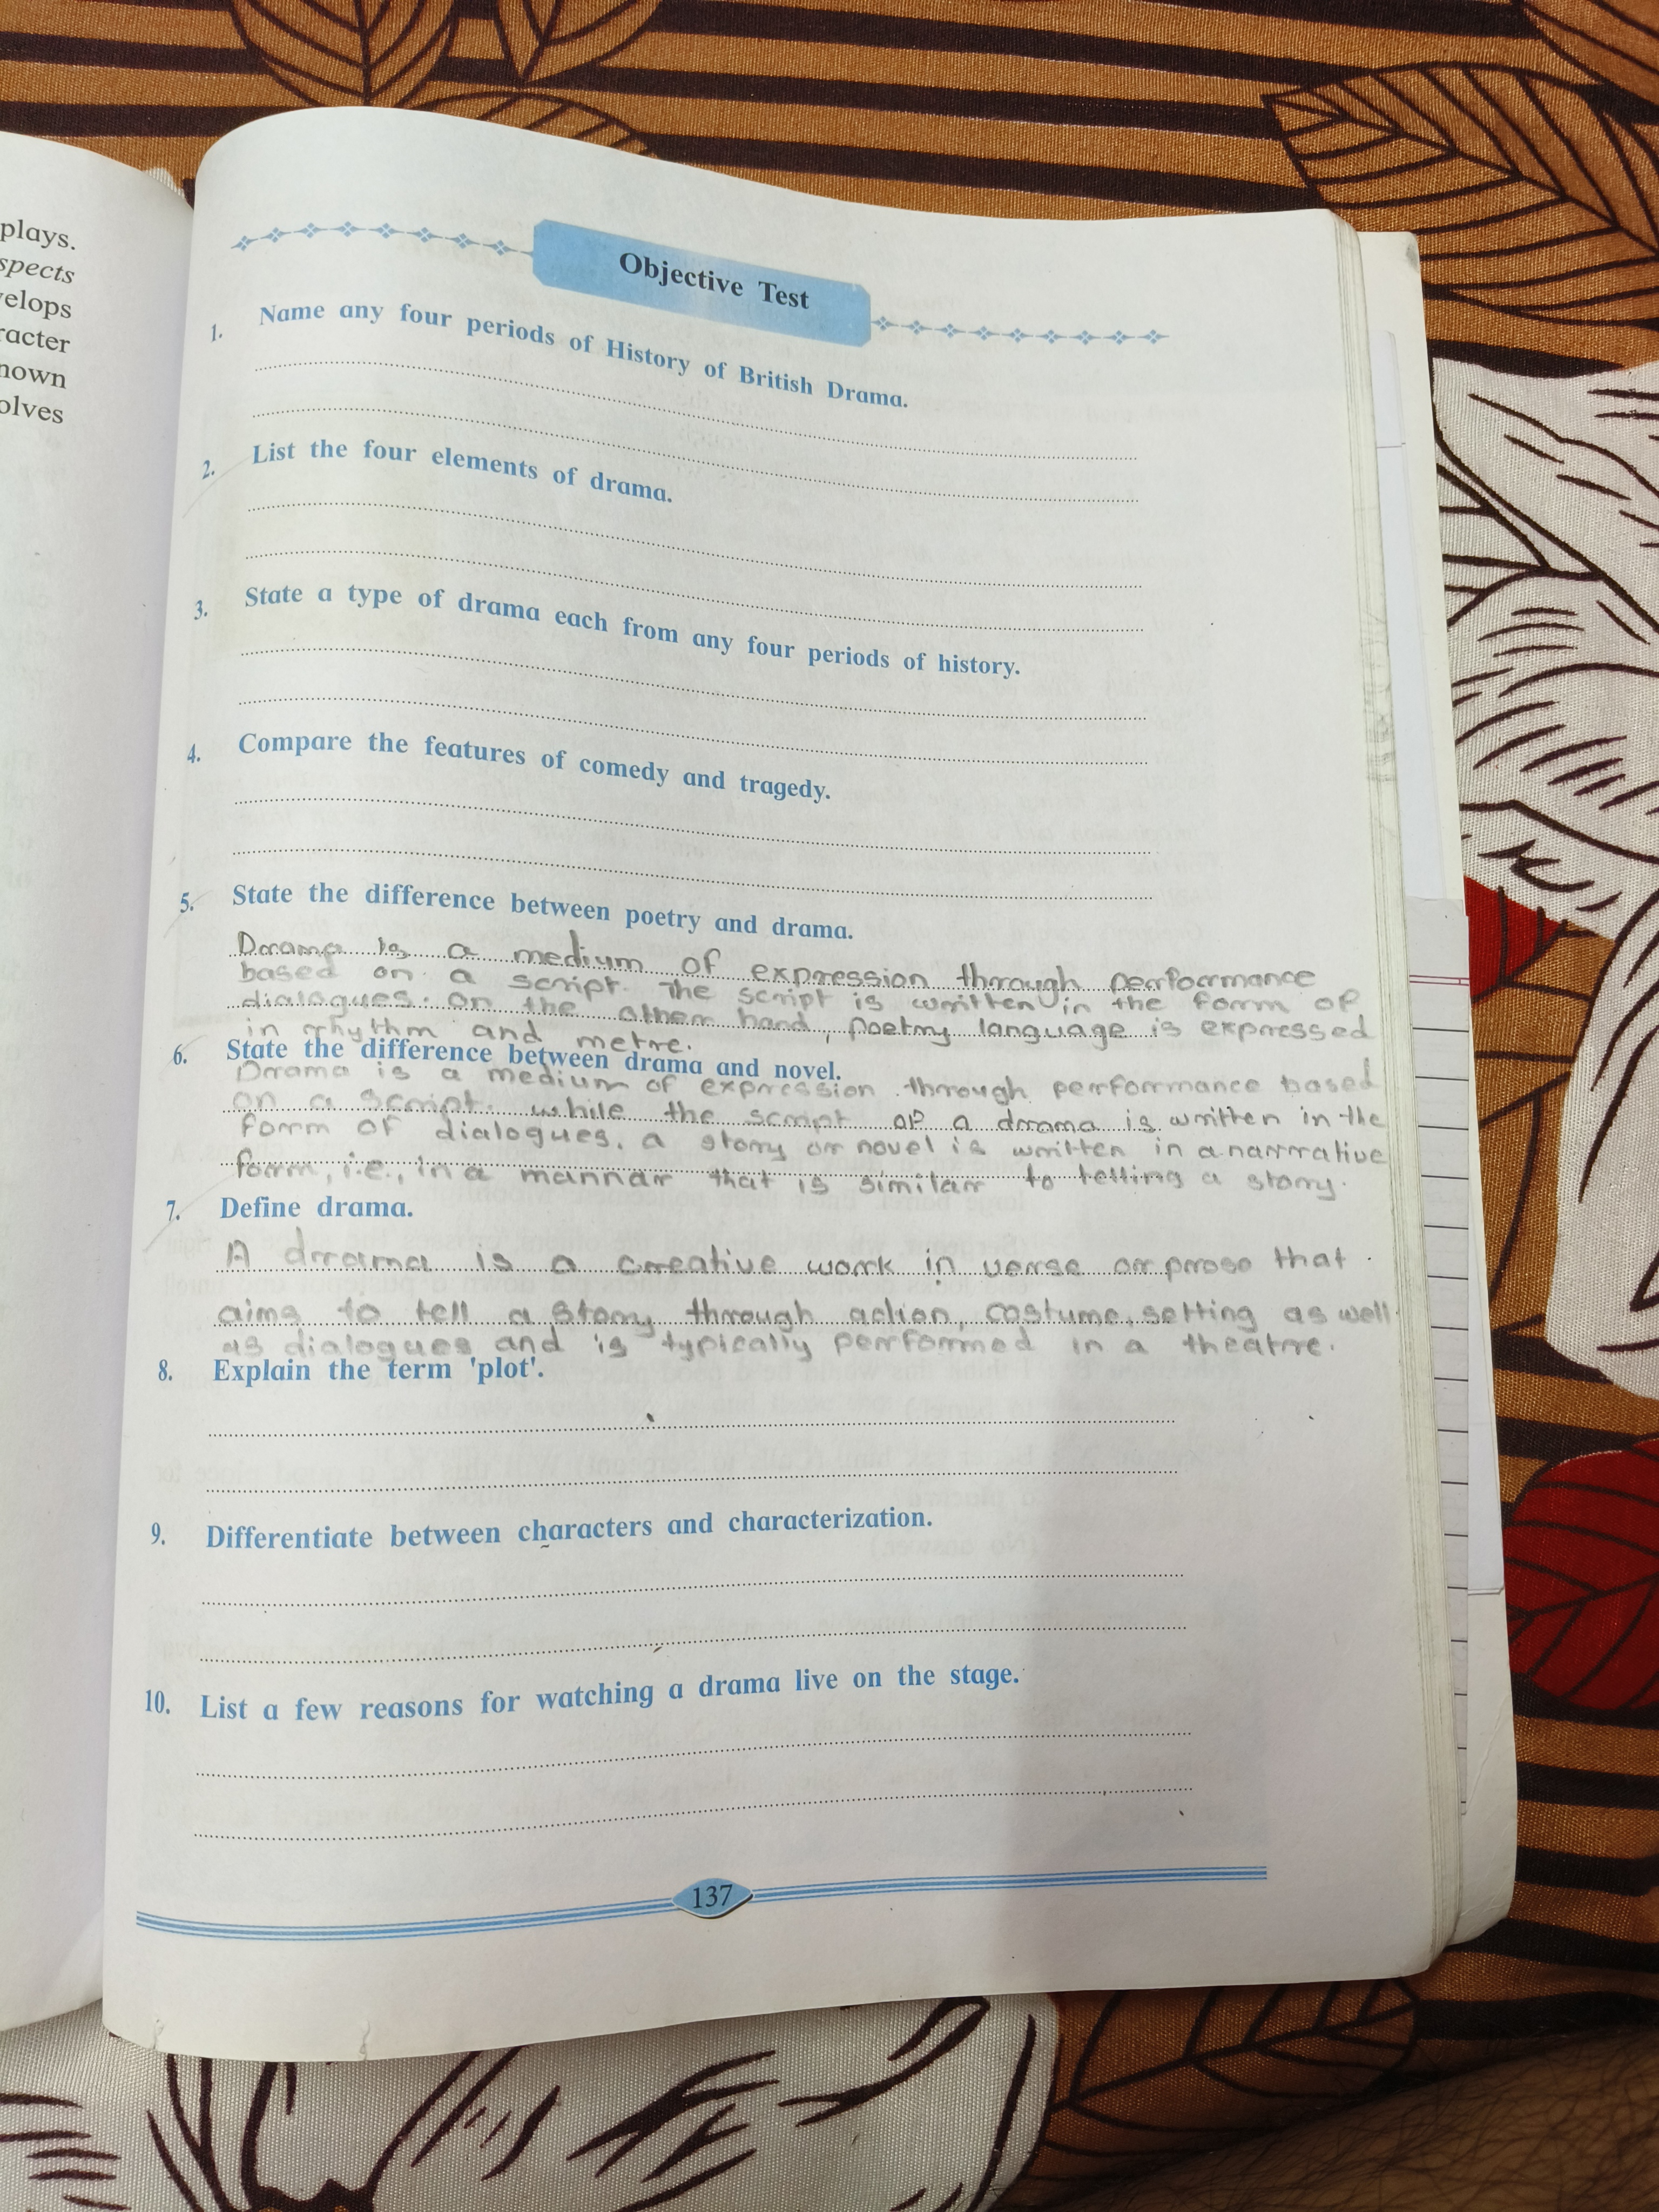 plays.
spects
velops
racter
nown
olves
Objective Test
1. Name any four periods of History of British Drama.
2. List the four elements of drama.
3. State a type of drama each from any four periods of history.
4. Compare the features of comedy and tragedy.
5. State the difference between poetry and drama.
Drama is a medium of expression through performance
based on a script. The script is written in the form of
dialogues. on the other hand, poetry language is expressed
in rhythm and metre.
6. State the difference between drama and novel.
Drama is a medium of expression through performance based
on a script. while the script of a drama is written in the
form of dialogues. a story or novel is written in a narrative
form, i.e., in a mannar that is similar to telling a story.
7. Define drama.
A drama is a creative work in verse or prose that
aims to tell a story through action, costume, setting as well
as dialogues and is typically performed in a theatre.
8. Explain the term 'plot'.
9. Differentiate between characters and characterization.
10. List a few reasons for watching a drama live on the stage.
137